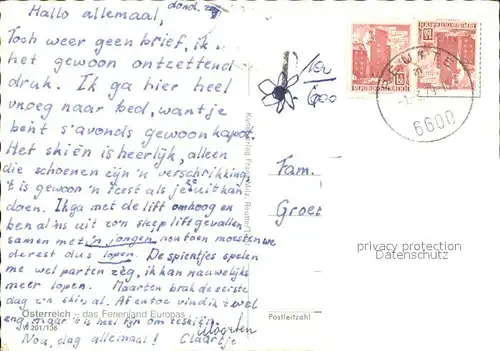 dond.
Hallo allemaal,
Toch weer geen brief, ik
het gewoon ontzettend
druk. Ik ga hier heel
vroeg naar bed, want je
bent s'avonds gewoon kapot.
Het skiën is heerlijk, alleen
die schoenen zijn 'n verschrikking
't is gewoon 'n feest als je ze uit kan
doen. Ik ga met de lift omhoog en
ben al ns uit zo'n sleeplift gevallen
samen met 'n jongen, nou toen moesten we
de rest dus lopen. De spiertjes spelen
me wel parten zèg, ik kan nauwelijks
meer lopen. Maarten brak de eerste
dag z'n ski al. Af en toe vind ik 't wel
eng, maar 't is heel fijn om te skiën.
Nou, dag allemaal! Claartje
Maarten
Österreich - das Ferienland Europas
W 201/136
6600
REUTTE
6600
Fam.
Groet
Postleitzahl
privacy protection
Datenschutz